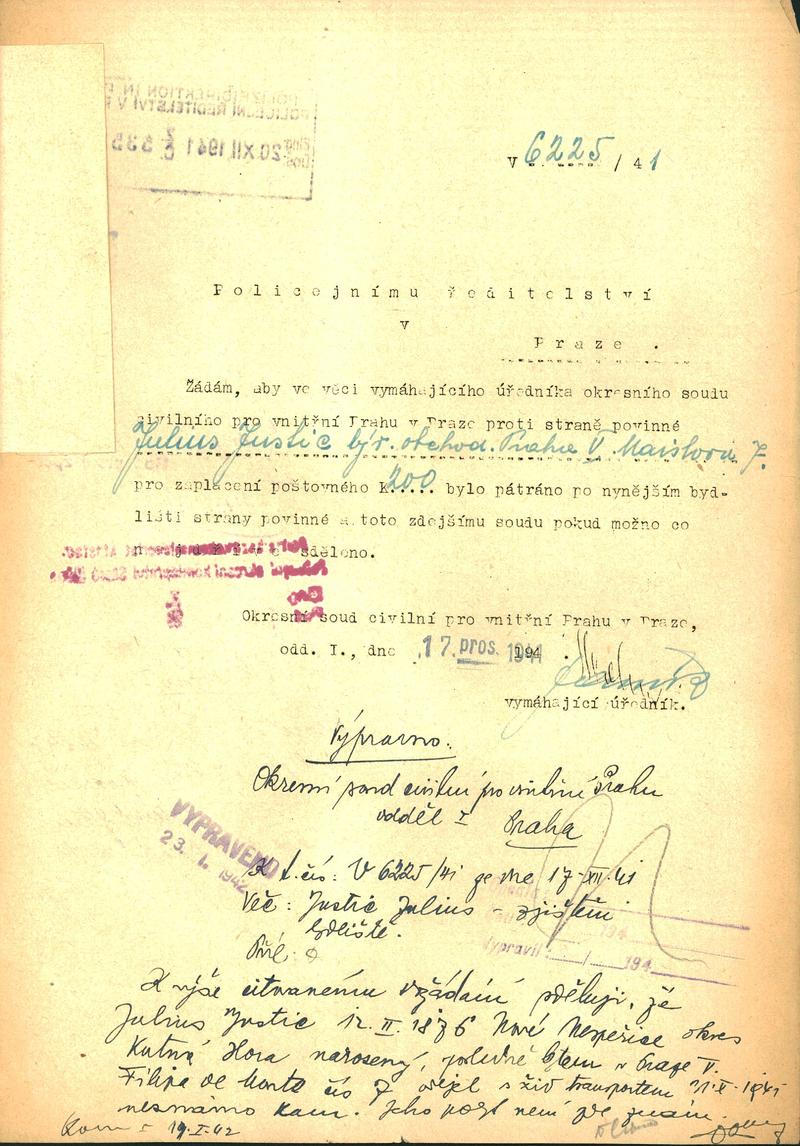 V 6225 / 41
20.XII.1941
Policejnímu ředitelství
v
Praze.
Žádám, aby ve věci vymáhajícího úředníka okresního soudu
civilního pro vnitřní Prahu v Praze proti straně povinné
Julius Justic býv. obchod. Praha V. Maislova 7.
pro zaplacení poštovného K 200 bylo pátráno po nynějším byd-
lišti strany povinné a toto zdejšímu soudu pokud možno co
sděleno.
Okresní soud civilní pro vnitřní Prahu v Praze,
odd. I., dne 17. pros. 1941 194 .
vymáhající úředník.
Výpravno:
Okresní soud civilní pro vnitřní Prahu
odděl I
Praha
VYPRAVENO
23. I. 1942
K t. čís: V 6225/41 ze dne 17-XII-41
Věc: Justic Julius – zjištění
bydliště.
Příl: ø
Vypravil: / 194
K výše citovanému dožádání sděluji, že
Julius Justic 12.II.1876 Nové Nespeřice okres
Kutná Hora narozený, posledně bytem v Praze V.
Filipa de Monte čís 7 odejel s žid transportem 31-X-1941
neznámo kam. Jeho pobyt není zde znám.
19.I.42